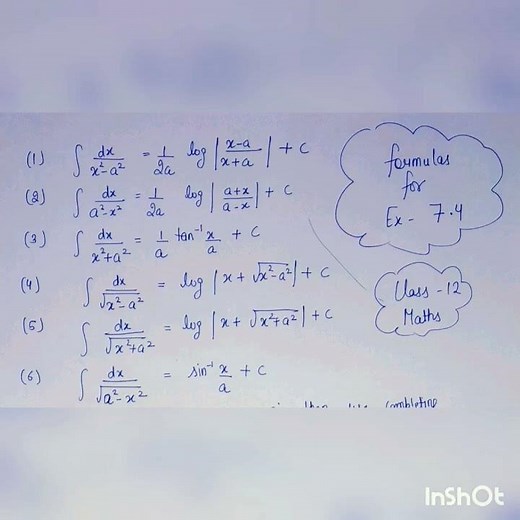 (1) ∫ dx/(x²-a²) = 1/2a log |(x-a)/(x+a)| + C
(2) ∫ dx/(a²-x²) = 1/2a log |(a+x)/(a-x)| + C
(3) ∫ dx/(x²+a²) = 1/a tan⁻¹ x/a + C
(4) ∫ dx/√(x²-a²) = log |x + √(x²-a²)| + C
(5) ∫ dx/√(x²+a²) = log |x + √(x²+a²)| + C
(6) ∫ dx/√(a²-x²) = sin⁻¹ x/a + C
formulas
for
Ex - 7.4
Class - 12
Maths
InShOt